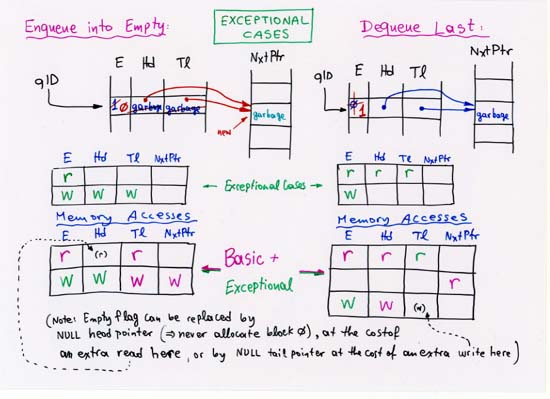 Enqueue into Empty:
EXCEPTIONAL
CASES
Dequeue Last:
E Hd Tl NxtPtr
qID
1 0 garbage garbage garbage
new
E Hd Tl NxtPtr
qID
0 1 garbage
E Hd Tl NxtPtr
r
w w w
← Exceptional Cases →
E Hd Tl NxtPtr
r r r
w
Memory Accesses
E Hd Tl NxtPtr
r (r) r
w w w w
Basic +
Exceptional
Memory Accesses
E Hd Tl NxtPtr
r r r
r
w w (w)
(Note: Empty flag can be replaced by
NULL head pointer (⇒ never allocate block 0), at the cost of
an extra read here, or by NULL tail pointer at the cost of an extra write here)